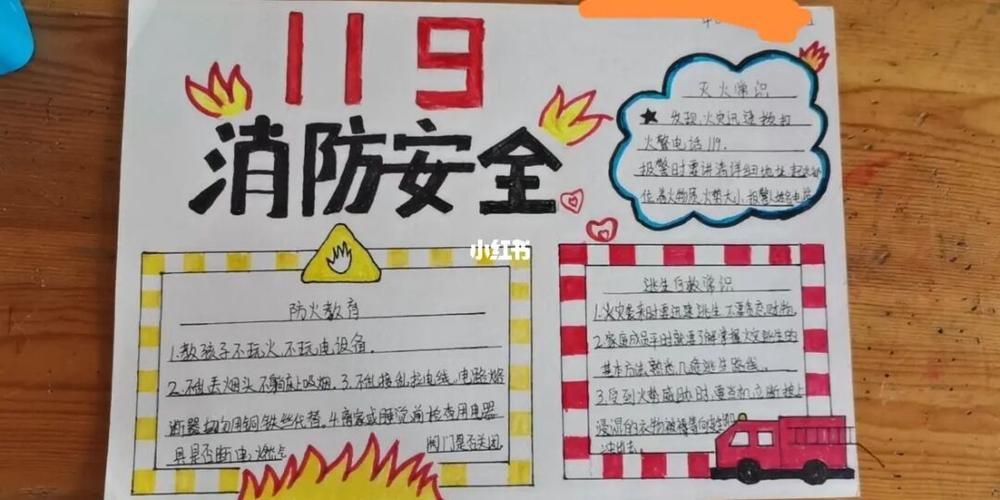 119
消防安全
灭火常识
★ 发现火灾迅速拨打
火警电话119.
报警时要讲清详细地址 起火部
位 着火物质 火势大小 报警人姓名电话
小红书
防火教育
1.教孩子不玩火 不玩电设备.
2.不乱丢烟头 不躺床上吸烟. 3.不乱接乱拉电线,电路熔
断器切勿用铜 铁丝代替. 4.离家或睡觉前检查用电器
具是否断电,燃点 阀门是否关闭
逃生自救常识
1.火灾袭来时要迅速逃生 不要贪恋财物.
2.家庭成员平时就要了解掌握火灾逃生的
基本方法 熟悉几条逃生路线.
3.受到火势威胁时,要当机立断披上
浸湿的衣物被褥等向安全
冲出去.